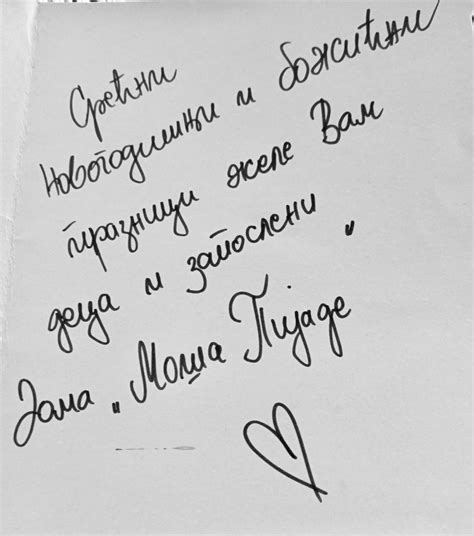 Срећни
новогодишњи и божићни
празници желе Вам
деца и запослени
Дома „Моша Пијаде"